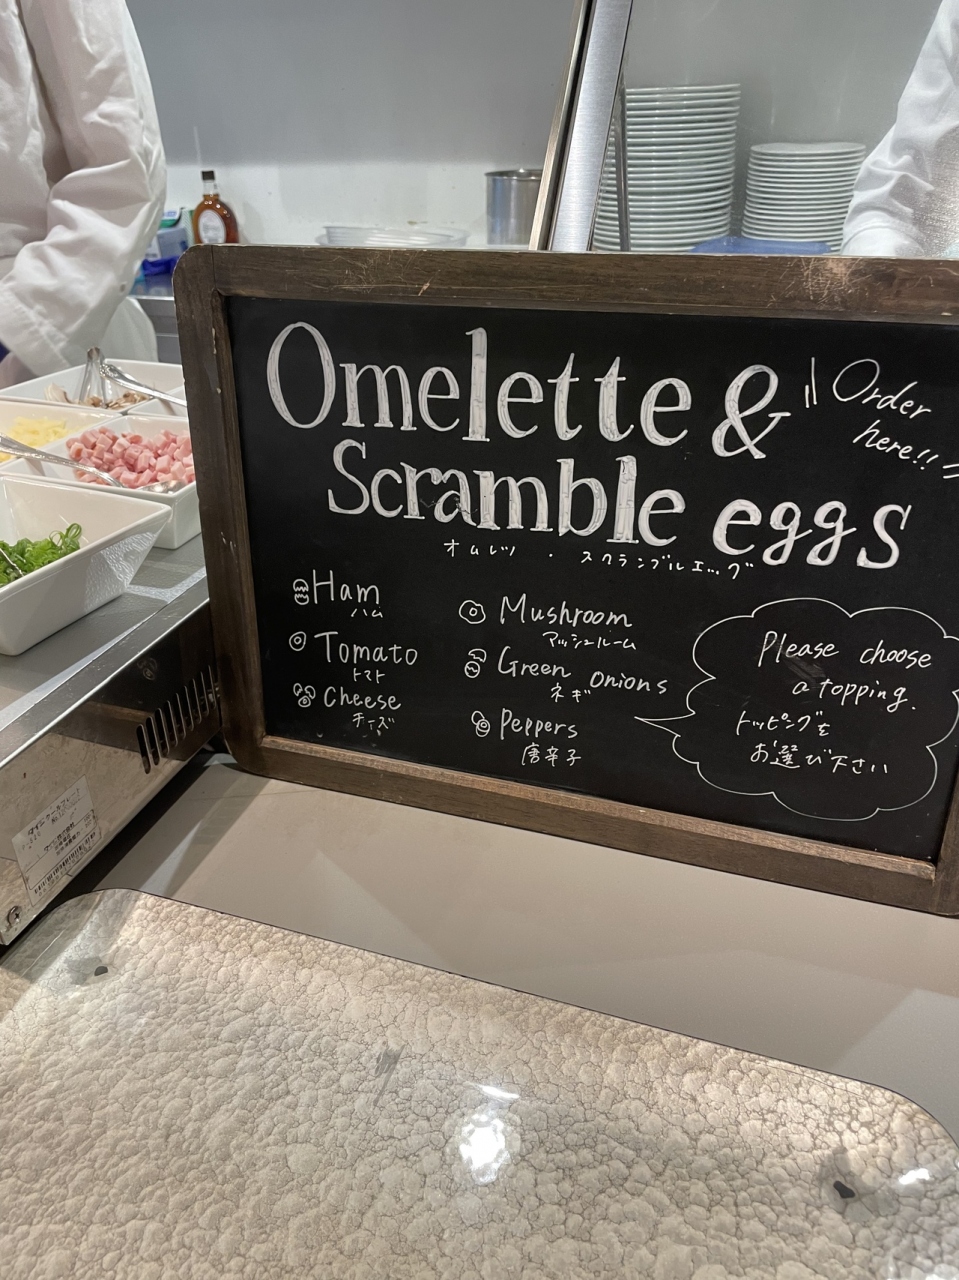 Omelette &
Order
here!!
Scramble eggs
オムレツ ・ スクランブルエッグ
Ham
ハム
Tomato
トマト
Cheese
チーズ
Mushroom
マッシュルーム
Green onions
ネギ
Peppers
唐辛子
Please choose
a topping.
トッピングを
お選び下さい